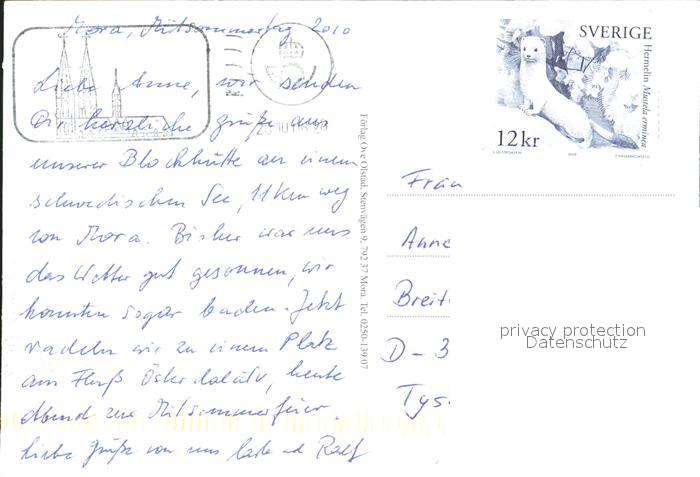 Mora, Mittsommertag 2010
Liebe Anne, wir senden
Dir herzliche Grüße aus
unserer Blockhütte an einem
schwedischen See, 11 km weg
von Mora. Bisher war uns
das Wetter gut gesonnen, wir
konnten sogar baden. Jetzt
radeln wir zu einem Platz
am Fluß Österdalälv, heute
Abend zur Mitsommerfeier.
Liebe Grüße von uns Ralf
Förlag: Ove Olstad, Stenvägen 9, 792 37 Mora. Tel. 0250-139 07
SVERIGE
Hermelin Mustela erminea
12 kr
Frau
Anne
Breit
D - 3
Tys
privacy protection
Datenschutz